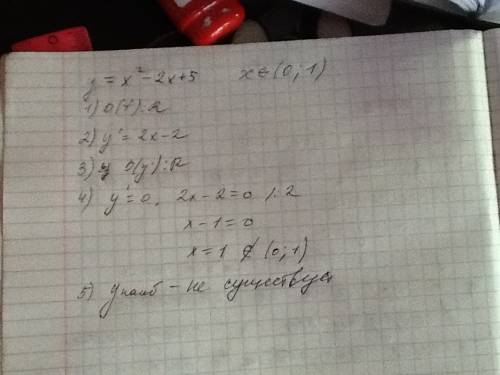 y = x² - 2x + 5 x ∈ (0; 1)
1) D(f): R
2) y' = 2x - 2
3) D(y'): R
4) y' = 0, 2x - 2 = 0 /: 2
x - 1 = 0
x = 1 ∉ (0; 1)
5) y наиб - не существует